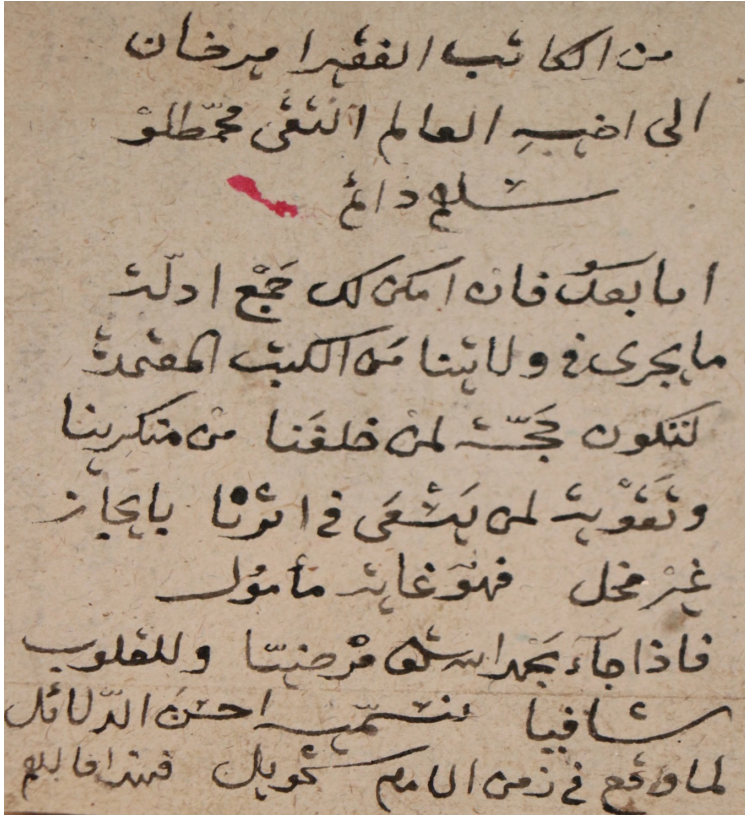 من الكاتب الفقير امیرخان
الى اخيه العالم التقى محمّد طلو
سلام دائم
اما بعدُ فان امكن لك جَمْع ادلّة
ما يجرى فى ولايتنا مَن الكتب المعتمدة
لتكون حجّة لمن خلفَنا من منكرينا
وتقوية لمن يَسْعَى فى اثرنا بايجاز
غير مخل فهوَ غاية مأمول
فاذا جآء بحمد الله مرضيّا وللقلوب
شافيا نسمّيه احسن الدّلائل
لما وقع فى زمن الامام شمويل فهذا